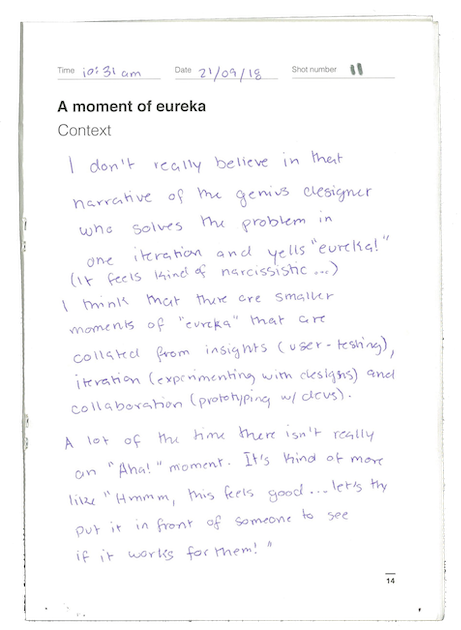 Time 10:31 am Date 21/09/18 Shot number 11
A moment of eureka
Context
I don't really believe in that
narrative of the genius designer
who solves the problem in
one iteration and yells "eureka!"
(it feels kind of narcissistic...)
I think that there are smaller
moments of "eureka" that are
collated from insights (user-testing),
iteration (experimenting with designs) and
collaboration (prototyping w/ devs).
A lot of the time there isn't really
an "Aha!" moment. It's kind of more
like "Hmmm, this feels good... let's try
put it in front of someone to see
if it works for them!"
14